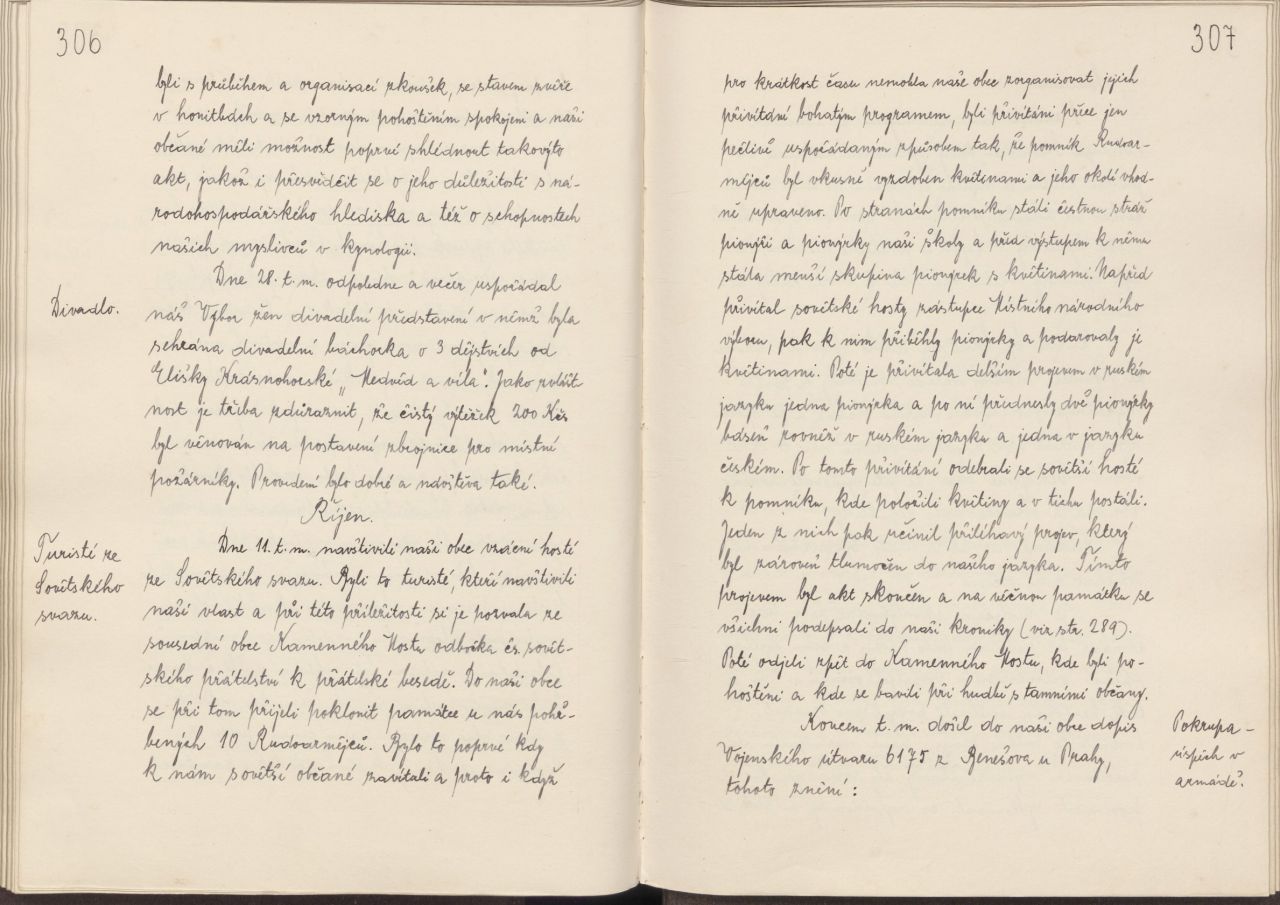 306
byli s průběhem a organisací zkoušek, se stavem zvěře
v honitbách a se vzorným pohoštěním spokojeni a naši
občané měli možnost poprvé shlédnout takovýto
akt, jakož i přesvědčit se o jeho důležitosti s ná-
rodohospodářského hlediska a též o schopnostech
našich myslivců v kynologii.
Dne 28. t. m. odpoledne a večer uspořádal
Divadlo.
náš Výbor žen divadelní představení v němž byla
sehrána divadelní báchorka o 3 dějstvích od
Elišky Krásnohorské „Medvěd a víla". Jako zvlášt-
nost je třeba zdůraznit, že čistý výtěžek 200 Kčs
byl věnován na postavení zbrojnice pro místní
požárníky. Provedení bylo dobré a návštěva také.
Říjen.
Turisté ze
Sovětského
svazu.
Dne 11. t. m. navštívili naši obec vzácní hosté
ze Sovětského svazu. Byli to turisté, kteří navštívili
naši vlast a při této příležitosti si je pozvala ze
sousední obce Kamenného Mostu odbočka čs. sovět-
ského přátelství k přátelské besedě. Do naší obce
se při tom přijeli poklonit památce u nás pohř-
bených 10 Rudoarmějců. Bylo to poprvé kdy
k nám sovětští občané zavítali a proto i když
307
pro krátkost času nemohla naše obec zorganisovat jejich
přivítání bohatým programem, byli přivítáni přece jen
pečlivě uspořádaným způsobem tak, že pomník Rudoar-
mějců byl vkusně vyzdoben květinami a jeho okolí vhod-
ně upraveno. Po stranách pomníku stáli čestnou stráž
pionýři a pionýrky naší školy a před výstupem k němu
stála menší skupina pionýrek s květinami. Napřed
přivítal sovětské hosty zástupce Místního národního
výboru, pak k nim přiběhly pionýrky a podarovaly je
květinami. Poté je přivítala delším projevem v ruském
jazyku jedna pionýrka a po ní přednesly dvě pionýrky
báseň rovněž v ruském jazyku a jedna v jazyku
českém. Po tomto přivítání odebrali se sovětští hosté
k pomníku, kde položili květiny a v tichu postáli.
Jeden z nich pak učinil přiléhavý projev, který
byl zároveň tlumočen do našeho jazyka. Tímto
projevem byl akt skončen a na věčnou památku se
všichni podepsali do naší kroniky (viz str. 289).
Poté odjeli zpět do Kamenného Mostu, kde byli po-
hoštěni a kde se bavili při hudbě s tamními občany.
Koncem t. m. došel do naší obce dopis
Vojenského útvaru 6175 z Benešova u Prahy,
tohoto znění:
Pokrupa -
úspěch v
armádě.